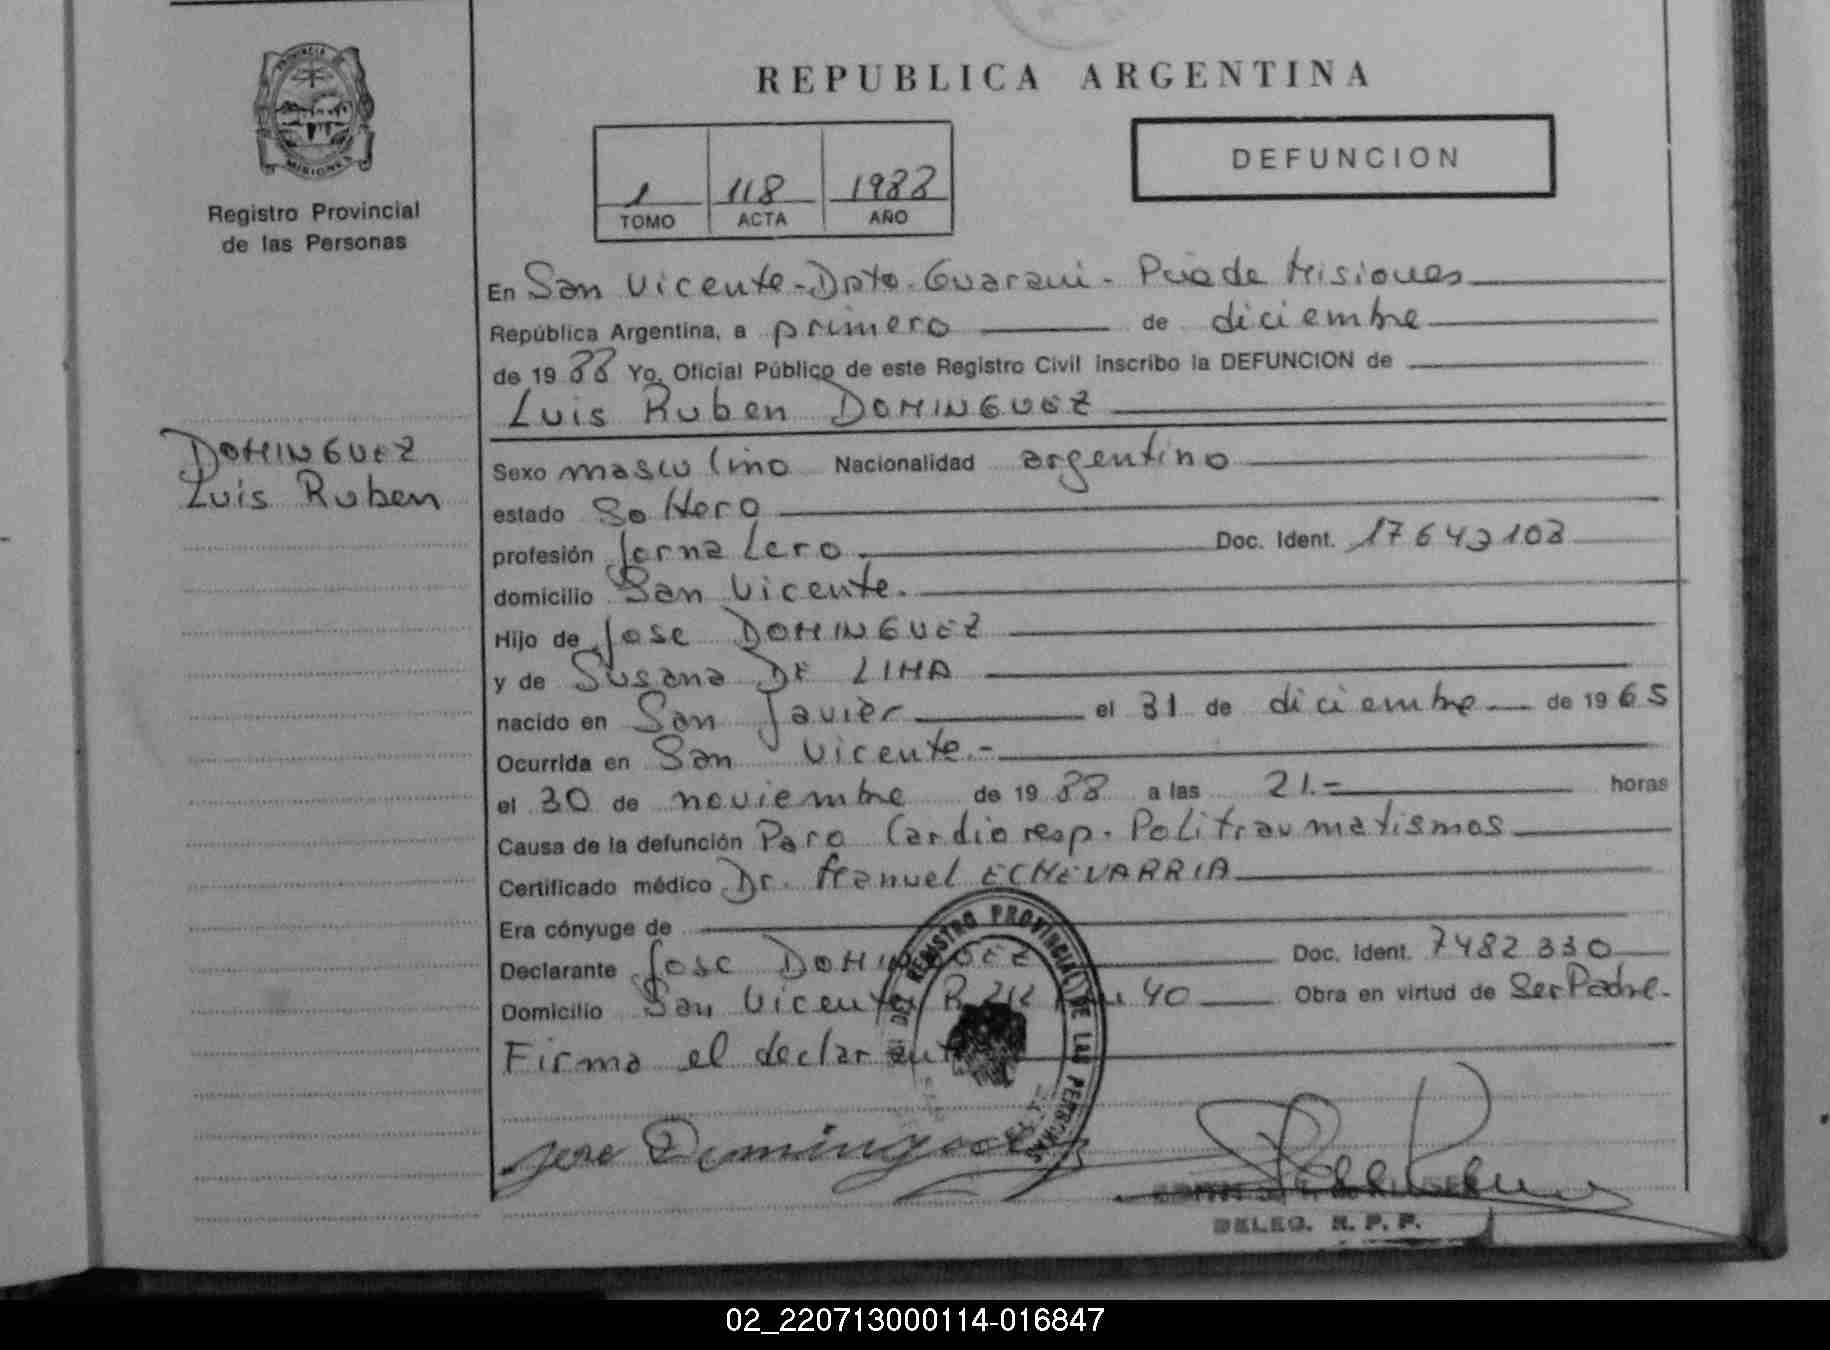 PROVINCIA
MISIONES
Registro Provincial
de las Personas
DOMINGUEZ
Luis Ruben
REPUBLICA ARGENTINA
DEFUNCION
1 118 1988
TOMO ACTA AÑO
En San Vicente - Dpto. Guarani - Pcia de Misiones
República Argentina, a primero de diciembre
de 19 88 Yo, Oficial Público de este Registro Civil inscribo la DEFUNCION de
Luis Ruben DOMINGUEZ
Sexo masculino Nacionalidad argentino
estado Soltero
profesión Jornalero Doc. Ident. 17643103
domicilio San Vicente.
Hijo de Jose DOMINGUEZ
y de Susana DE LIMA
nacido en San Javier el 31 de diciembre de 19 65
Ocurrida en San Vicente.-
el 30 de noviembre de 19 88 a las 21.- horas
Causa de la defunción Paro Cardio resp. Politraumatismos
Certificado médico Dr. Manuel ECHEVARRIA
Era cónyuge de
Declarante Jose DOMINGUEZ Doc. Ident. 7482330
Domicilio San Vicente R. 212 40 Obra en virtud de Ser Padre.
Firma el declarante
DEL REGISTRO PROVINCIAL DE LAS PERSONAS
Jose Dominguez
DELEG. R. P. P.
02_220713000114-016847